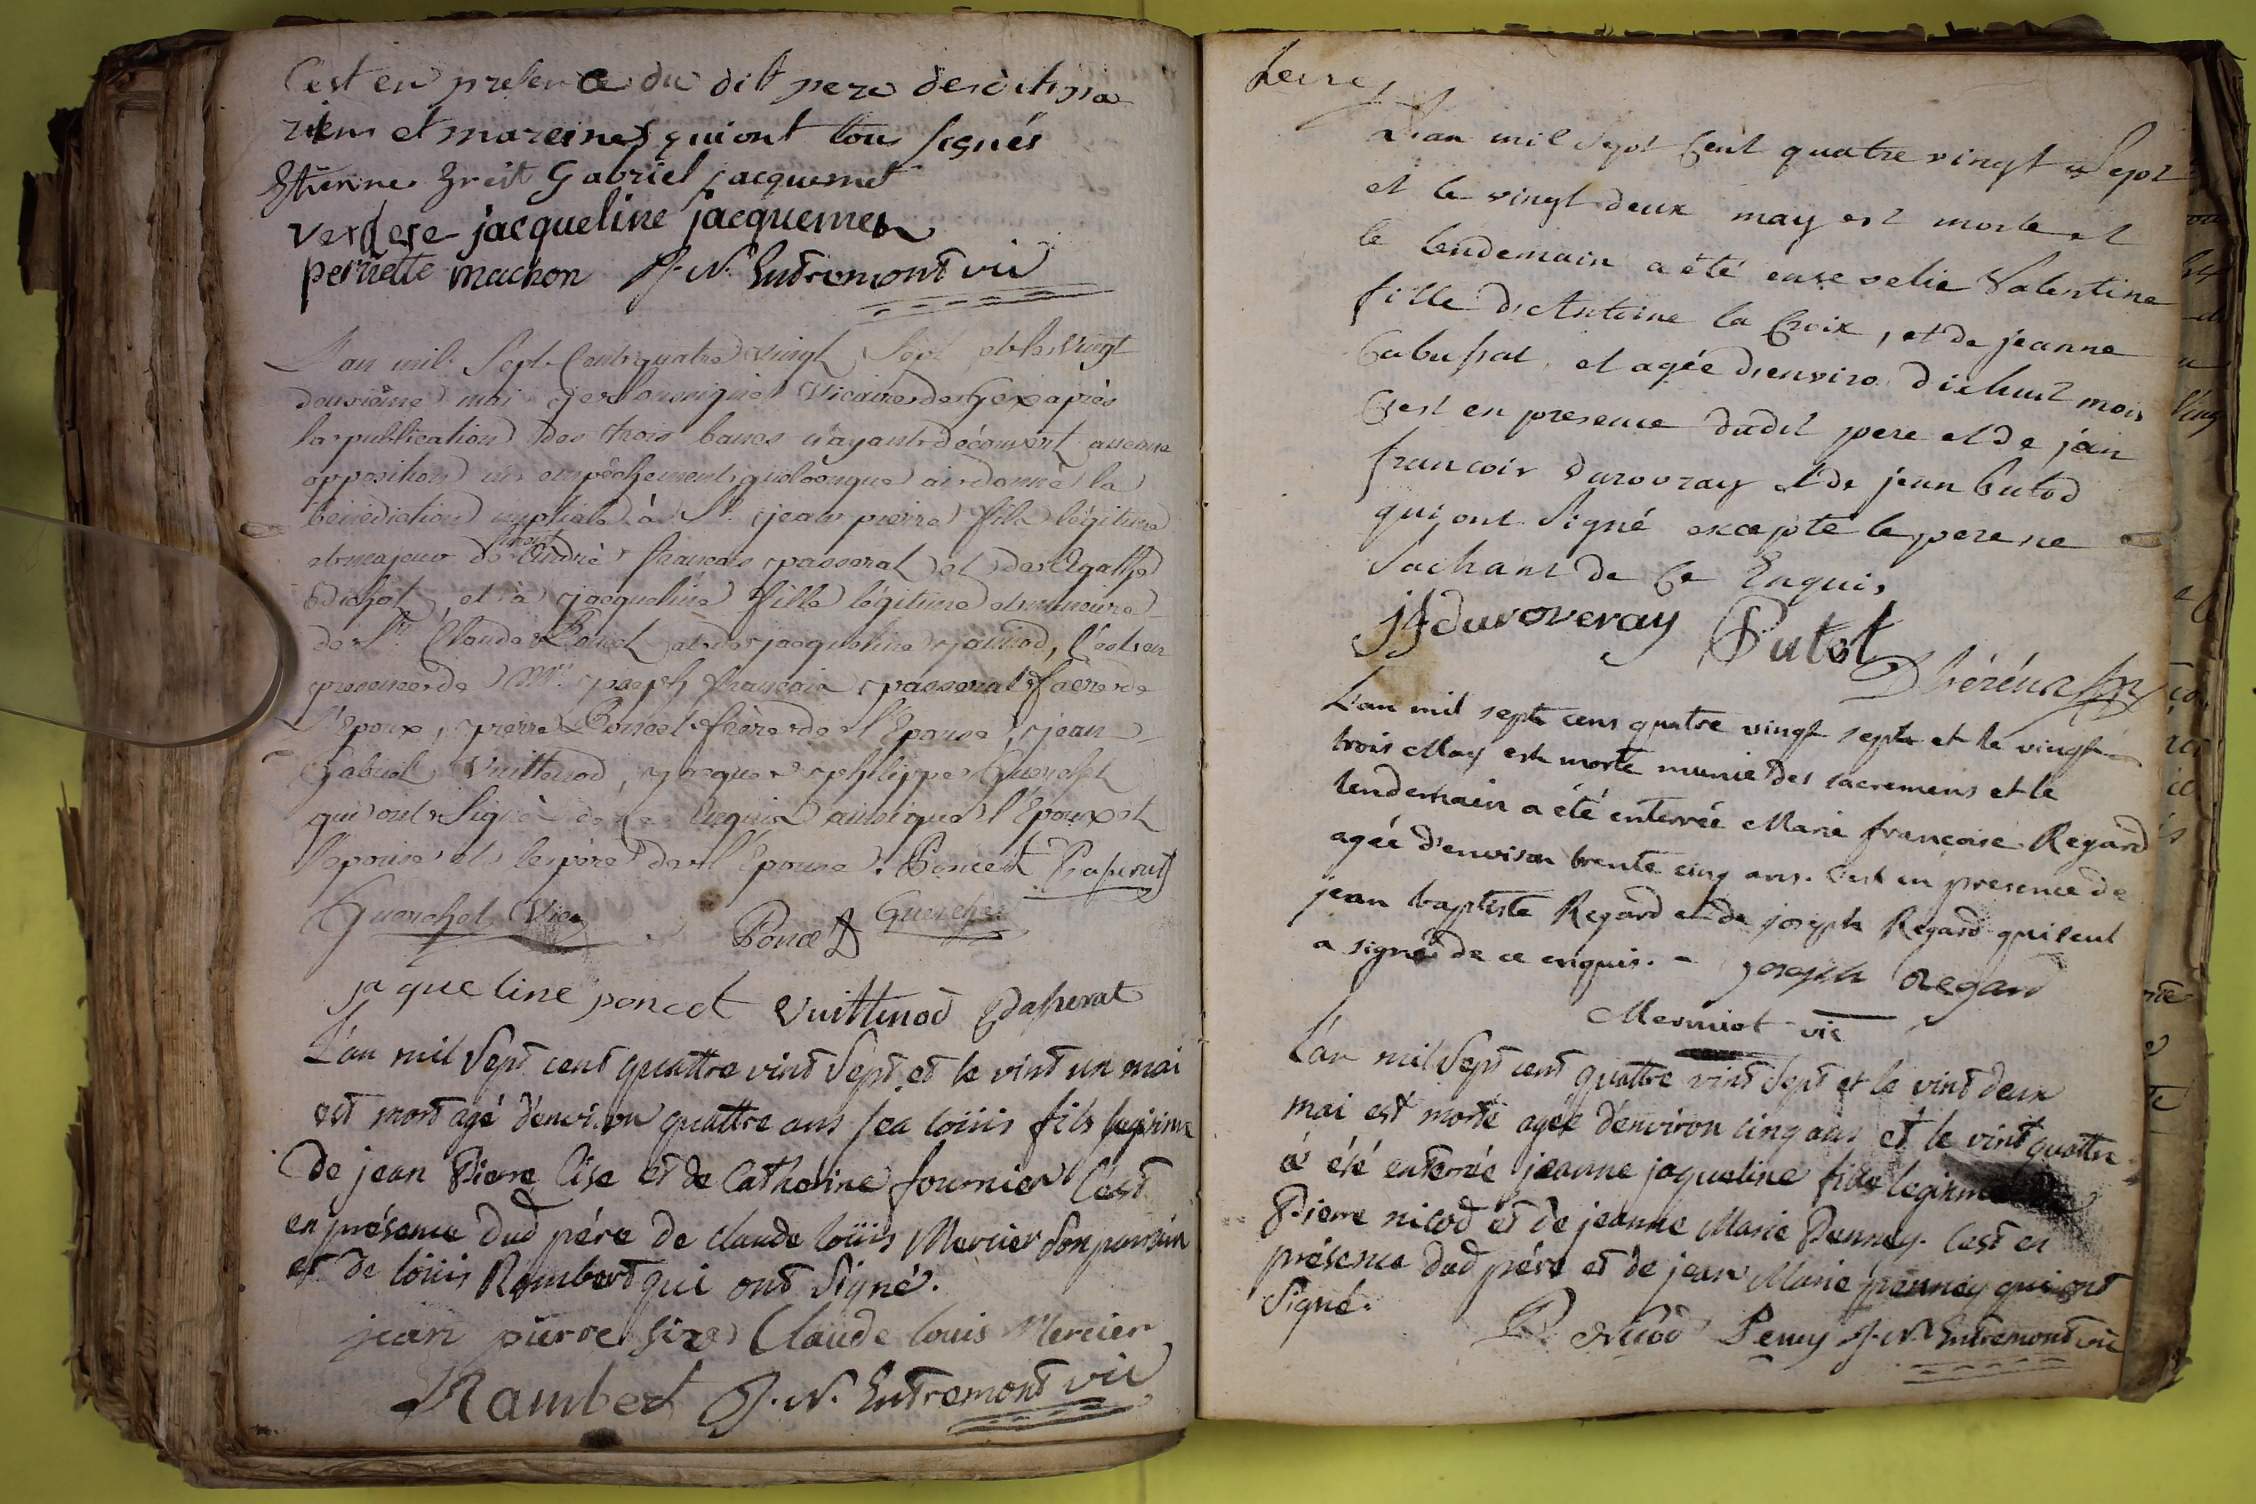 C'est en presence du dit pere desdits pa
rien et mareines qui ont tous signés
Etienne Gabriel jacquemet
jacqueline jacquemet
pernette machon J. N. Entremont vic
L'an mil Sept Cent quatre vingt Sept et le vingt
deuxième mai je soussigné Vicaire de Gex après
la publication des trois bancs n'ayant découvert aucune
opposition ni empêchement quelconque ai donné la
bénédiction nuptiale à Sr. jean pierre fils légitime
et majeur de André françois passerat et de Agathe
et à jacqueline fille légitime et mineure
de Sr. Claude Poncet et de jacqueline jaunod, C'est en
presence de Mr. joseph françois passerat frère de
l'Epoux, pierre Poncet frère de l'Epouse, jean
Gabriel Vuittenod, jacques philippe Guerchet
qui ont Signé de ce Enquis ainsi que l'Epoux et
l'epouse et le père de l'Epouse. Poncet Passerat
Guerchet Vic Poncet Guerchet
jaqueline poncet Vuittenod Passerat
L'an mil Sept cent quattre vint Sept et le vint un mai
est mort agé d'environ quattre ans loüis fils legitime
de jean Pierre Cise et de Cathérine fournier C'est
en présence dud pére de claude loüis Mercier Son parrain
et de loüis Rambert qui ont Signé.
jean pierre size Claude louis Mercier
Rambert J. N. Entremont vic
L'an mil Sept Cent quatre vingt Sept
et le vingt deux may est morte et
le lendemain a été ensevelie Valentine
fille d'Antoine la Croix, et de jeanne
Cabussat, et agée d'enviro dixhuit mois
C'est en presence dudit pere et de jean
francois Durovray et de jean Putod
qui ont Signé excepté le pere ne
Sachant de Ce Enquis
jf duroveray Putot
L'an mil septe cens quatre vingt septe et le vingt
trois May est morte munie des sacremens et le
lendemain a été enterrée Marie francoise Regard
agée d'environ trente cinq ans. C'est en presence de
jean baptiste Regard et de joseph Regard qui seul
a signé de ce enquis. - joseph Regard
Mermiot vic
L'an mil Sept cent quattre vint Sept et le vint deux
mai est morte agée d'environ cinq ans et le vint quattre
a été enterrée jeanne jaqueline fille legitime de
Pierre nicod et de jeanne Marie Penney. C'est en
présence dud pére et de jean Marie penney qui ont
Signé.
P. Nicod Peney J. N. Entremont vic